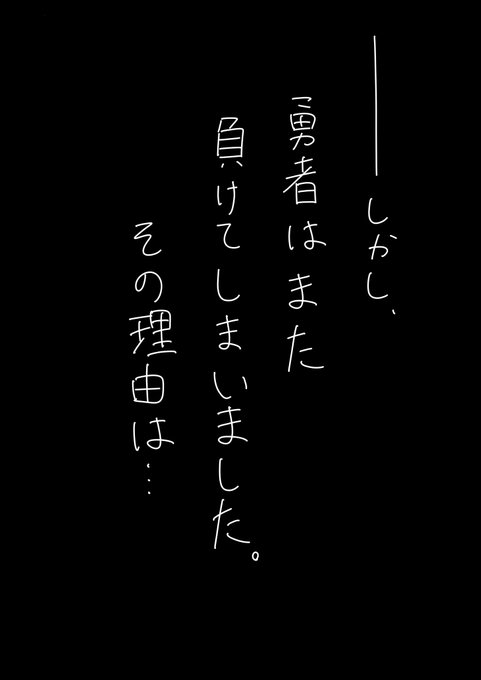 ――しかし、
勇者はまた
負けてしまいました。
その理由は…